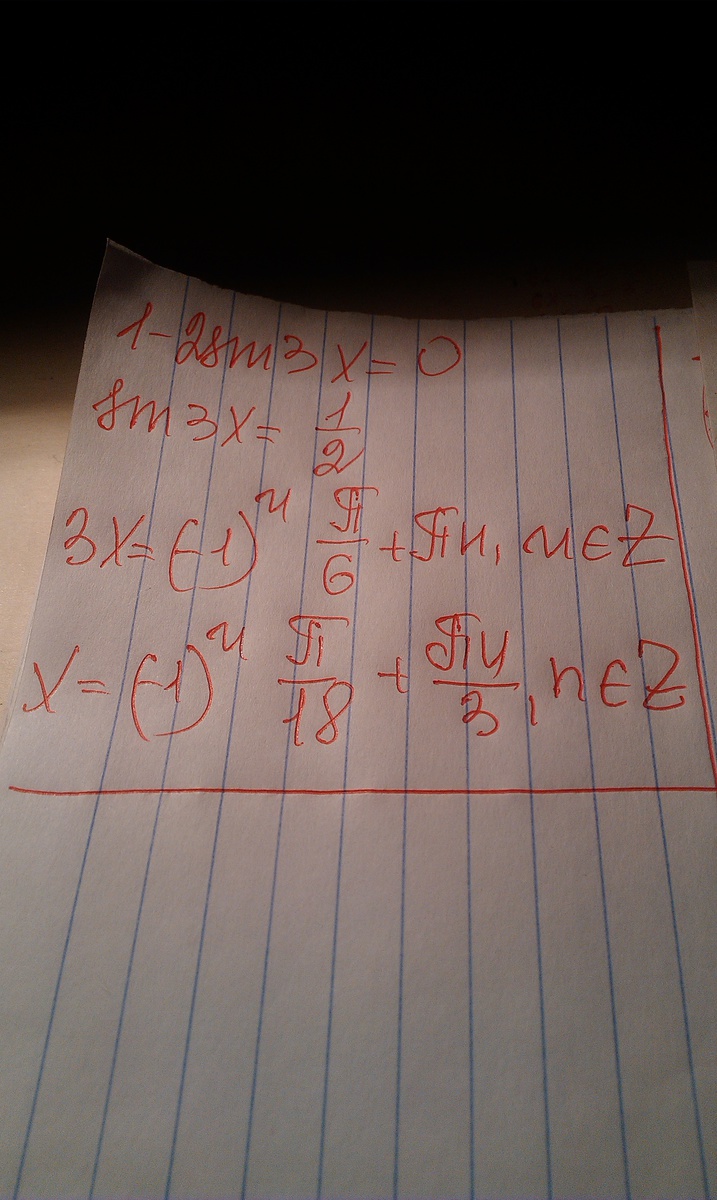 1-2sin3x=0
sin3x= 1/2
3x=(-1)^n π/6 +πn, n∈Z
x=(-1)^n π/18 + πn/3, n∈Z